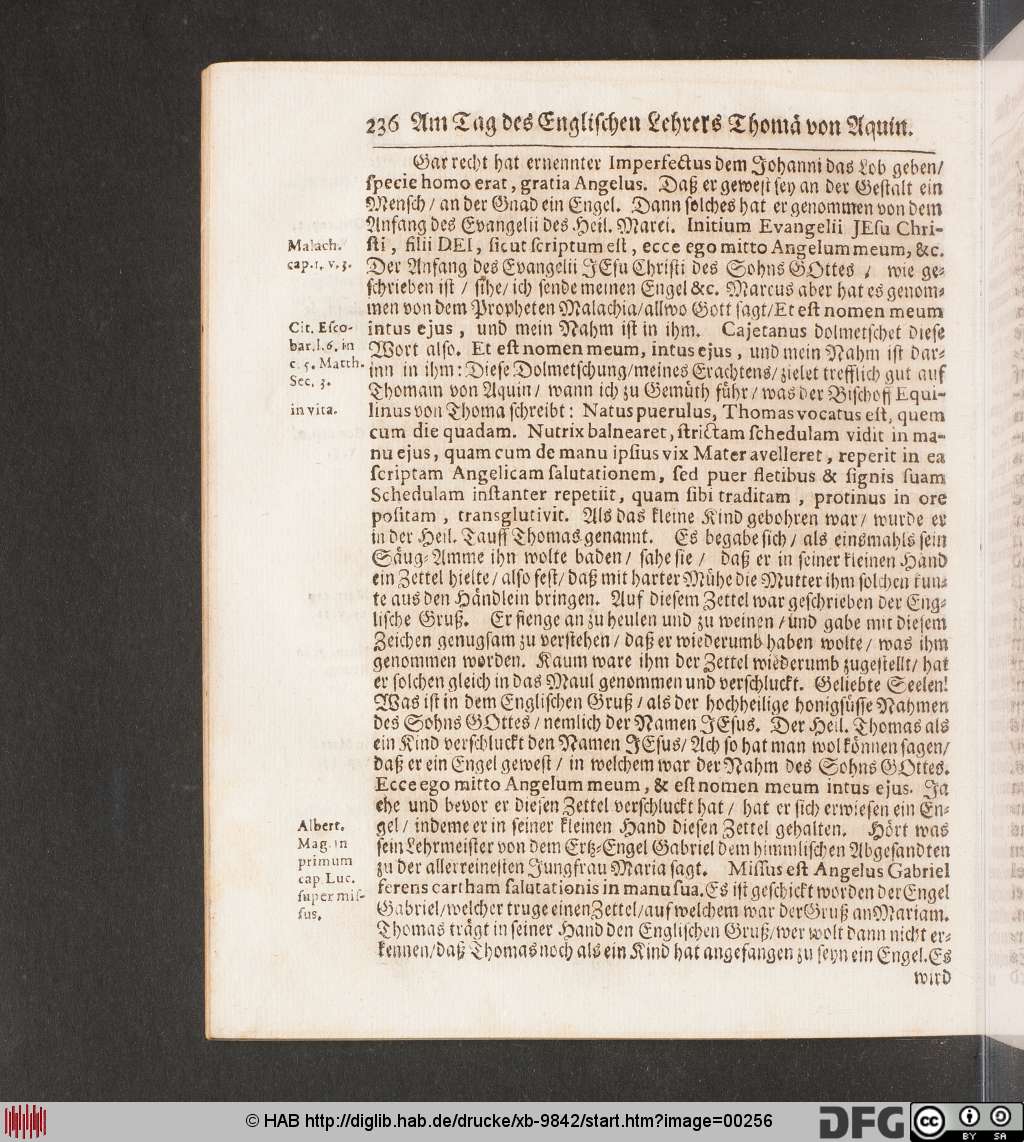 236 Am Tag des Englischen Lehrers Thomä von Aquin.
Gar recht hat ernennter Imperfectus dem Johanni das Lob geben/
specie homo erat, gratia Angelus. Daß er gewest sey an der Gestalt ein
Mensch / an der Gnad ein Engel. Dann solches hat er genommen von dem
Anfang des Evangelii des Heil. Marci. Initium Evangelii JEsu Chri-
Malach. cap. 1. v. 3.
sti, filii DEI, sicut scriptum est, ecce ego mitto Angelum meum, &c.
Der Anfang des Evangelii JEsu Christi des Sohns GOttes / wie ge-
schrieben ist / sihe / ich sende meinen Engel &c. Marcus aber hat es genom-
men von dem Propheten Malachia/allwo Gott sagt/Et est nomen meum
Cit. Esco-
bar. l. 6. in
c. 5. Matth.
Sec. 3.
intus ejus, und mein Nahm ist in ihm. Cajetanus dolmetschet diese
Wort also. Et est nomen meum, intus ejus, und mein Nahm ist dar-
inn in ihm: Diese Dolmetschung/meines Erachtens/zielet trefflich gut auf
Thomam von Aquin / wann ich zu Gemüth führ / was der Bischoff Equi-
in vita.
linus von Thoma schreibt: Natus puerulus, Thomas vocatus est, quem
cum die quadam. Nutrix balnearet, strictam schedulam vidit in ma-
nu ejus, quam cum de manu ipsius vix Mater avelleret, reperit in ea
scriptam Angelicam salutationem, sed puer fletibus & signis suam
Schedulam instanter repetiit, quam sibi traditam, protinus in ore
positam, transglutivit. Als das kleine Kind gebohren war / wurde er
in der Heil. Tauff Thomas genannt. Es begabe sich / als einsmahls sein
Säug-Amme ihn wolte baden / sahe sie / daß er in seiner kleinen Hand
ein Zettel hielte / also fest / daß mit harter Mühe die Mutter ihm solchen kun-
te aus den Händlein bringen. Auf diesem Zettel war geschrieben der Eng-
lische Gruß. Er fienge an zu heulen und zu weinen / und gabe mit diesem
Zeichen genugsam zu verstehen / daß er wiederumb haben wolte / was ihm
genommen worden. Kaum ware ihm der Zettel wiederumb zugestellt / hat
er solchen gleich in das Maul genommen und verschluckt. Geliebte Seelen!
Was ist in dem Englischen Gruß / als der hochheilige honigsüsse Nahmen
des Sohns GOttes / nemlich der Namen JEsus. Der Heil. Thomas als
ein Kind verschluckt den Namen JEsus / Ach so hat man wol können sagen/
daß er ein Engel gewest / in welchem war der Nahm des Sohns GOttes.
Ecce ego mitto Angelum meum, & est nomen meum intus ejus. Ja
ehe und bevor er diesen Zettel verschluckt hat / hat er sich erwiesen ein En-
Albert.
Mag. in
primum
cap Luc.
super mis-
sus.
gel / indeme er in seiner kleinen Hand diesen Zettel gehalten. Hört was
sein Lehrmeister von dem Ertz-Engel Gabriel dem himmlischen Abgesandten
zu der allerreinesten Jungfrau Maria sagt. Missus est Angelus Gabriel
ferens cartham salutationis in manu sua. Es ist geschickt worden der Engel
Gabriel/welcher truge einen Zettel/auf welchem war der Gruß an Mariam.
Thomas trägt in seiner Hand den Englischen Gruß/wer wolt dann nicht er-
kennen/daß Thomas noch als ein Kind hat angefangen zu seyn ein Engel. Es
wird
© HAB http://diglib.hab.de/drucke/xb-9842/start.htm?image=00256
DFG
cc BY SA